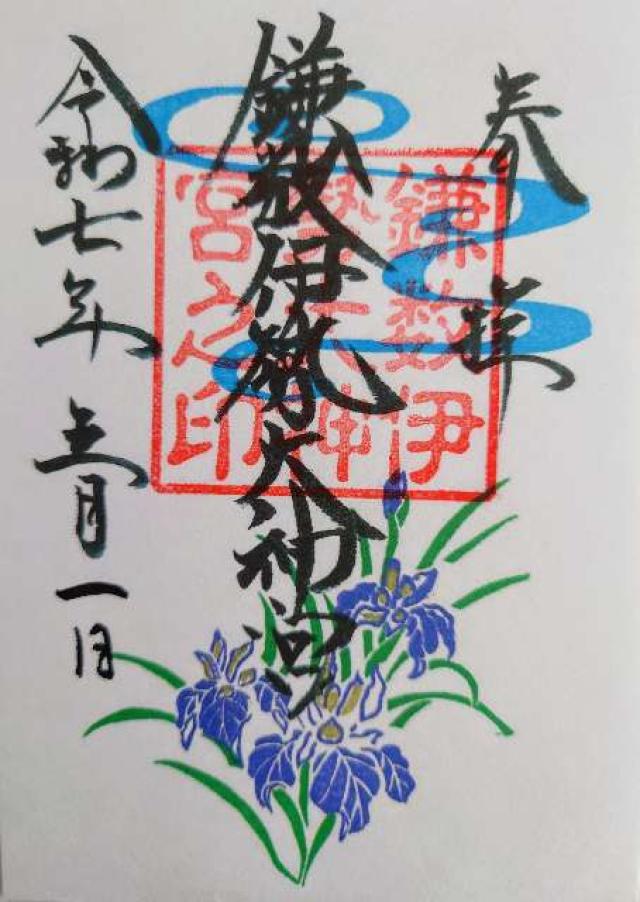 奉拝
鎌数伊勢大神宮
令和七年五月一日
鎌数伊
勢大神
宮之印